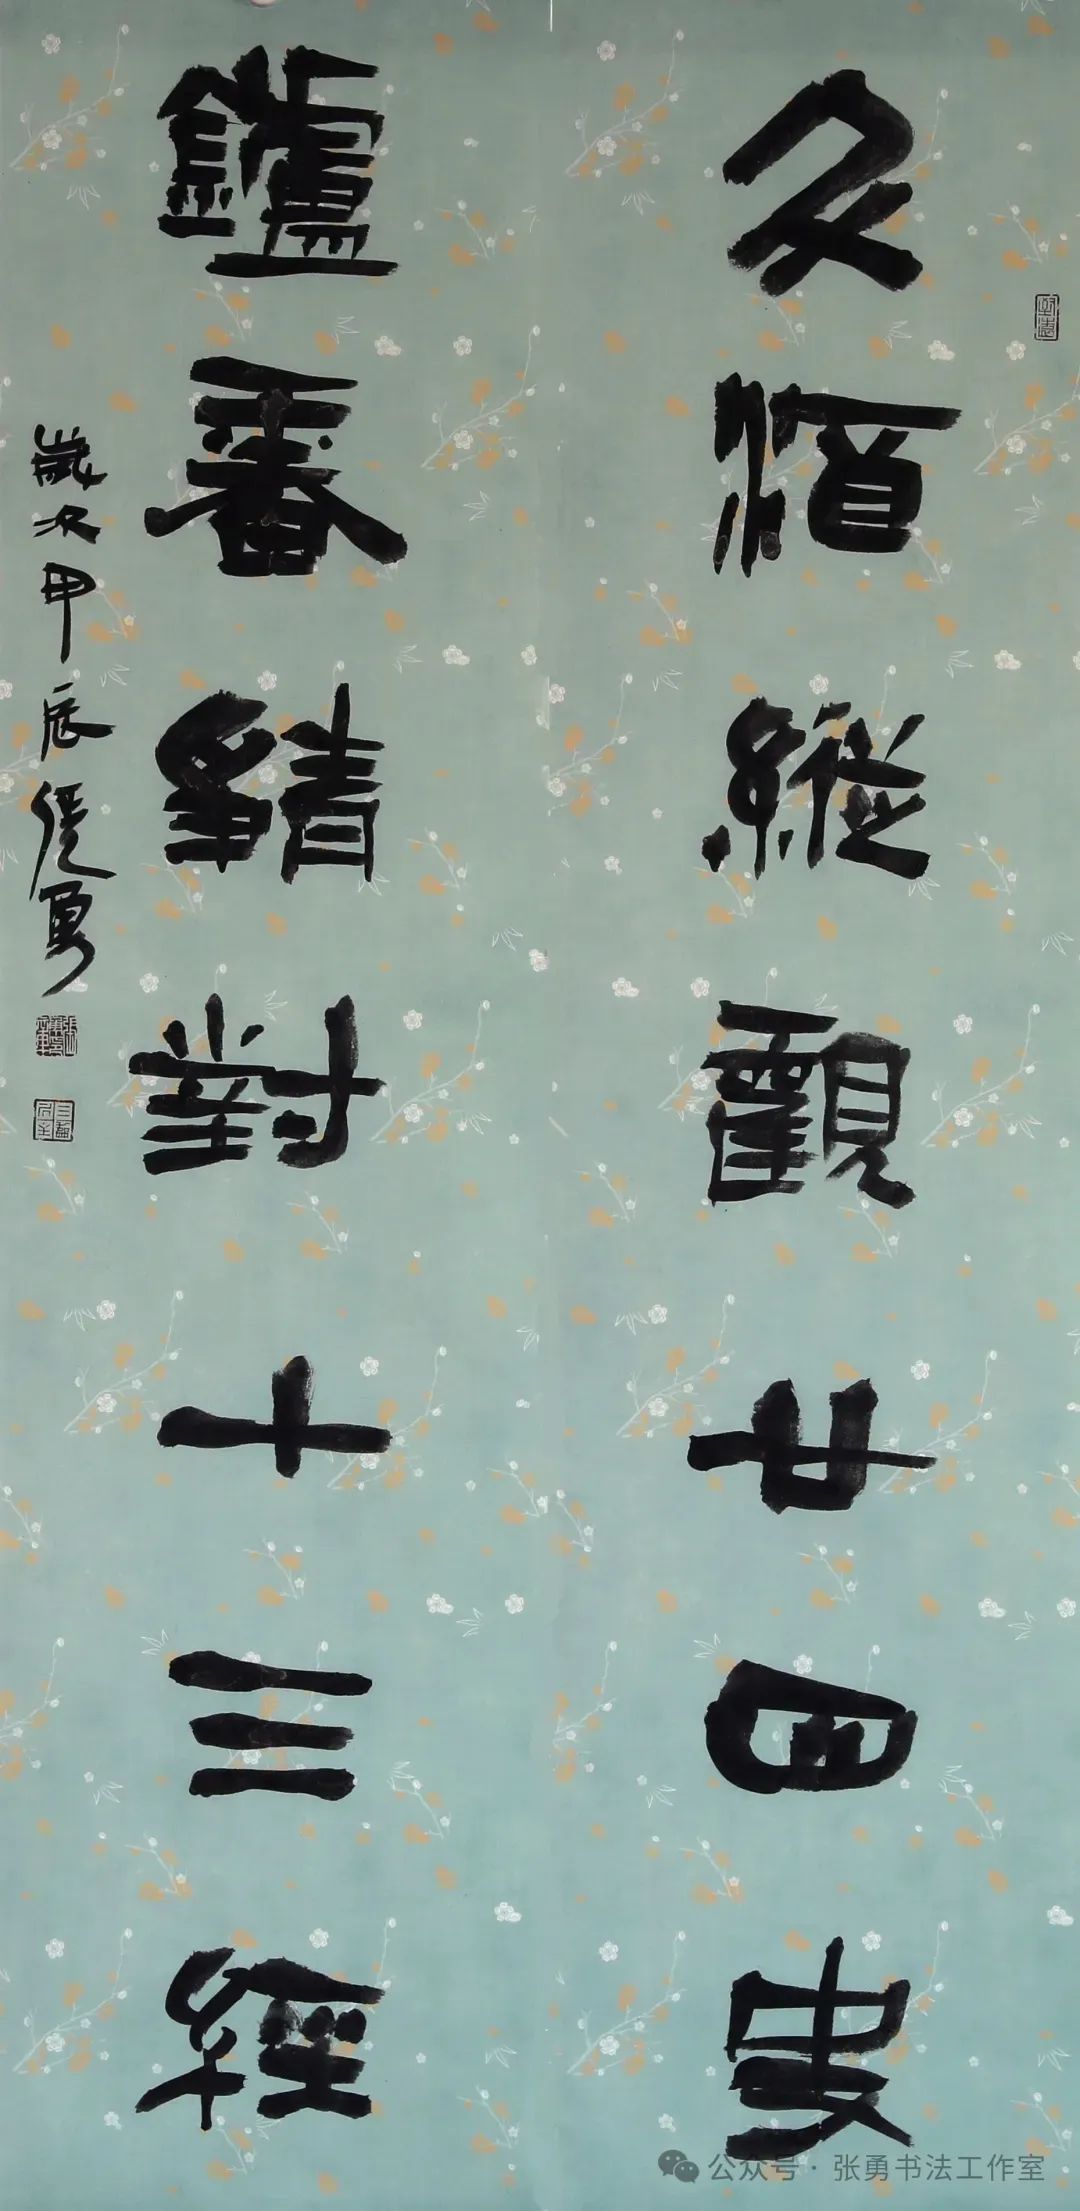 久酒縱觀廿四史
鑪香靜對十三經
歲次甲辰張勇
公众号·张勇书法工作室